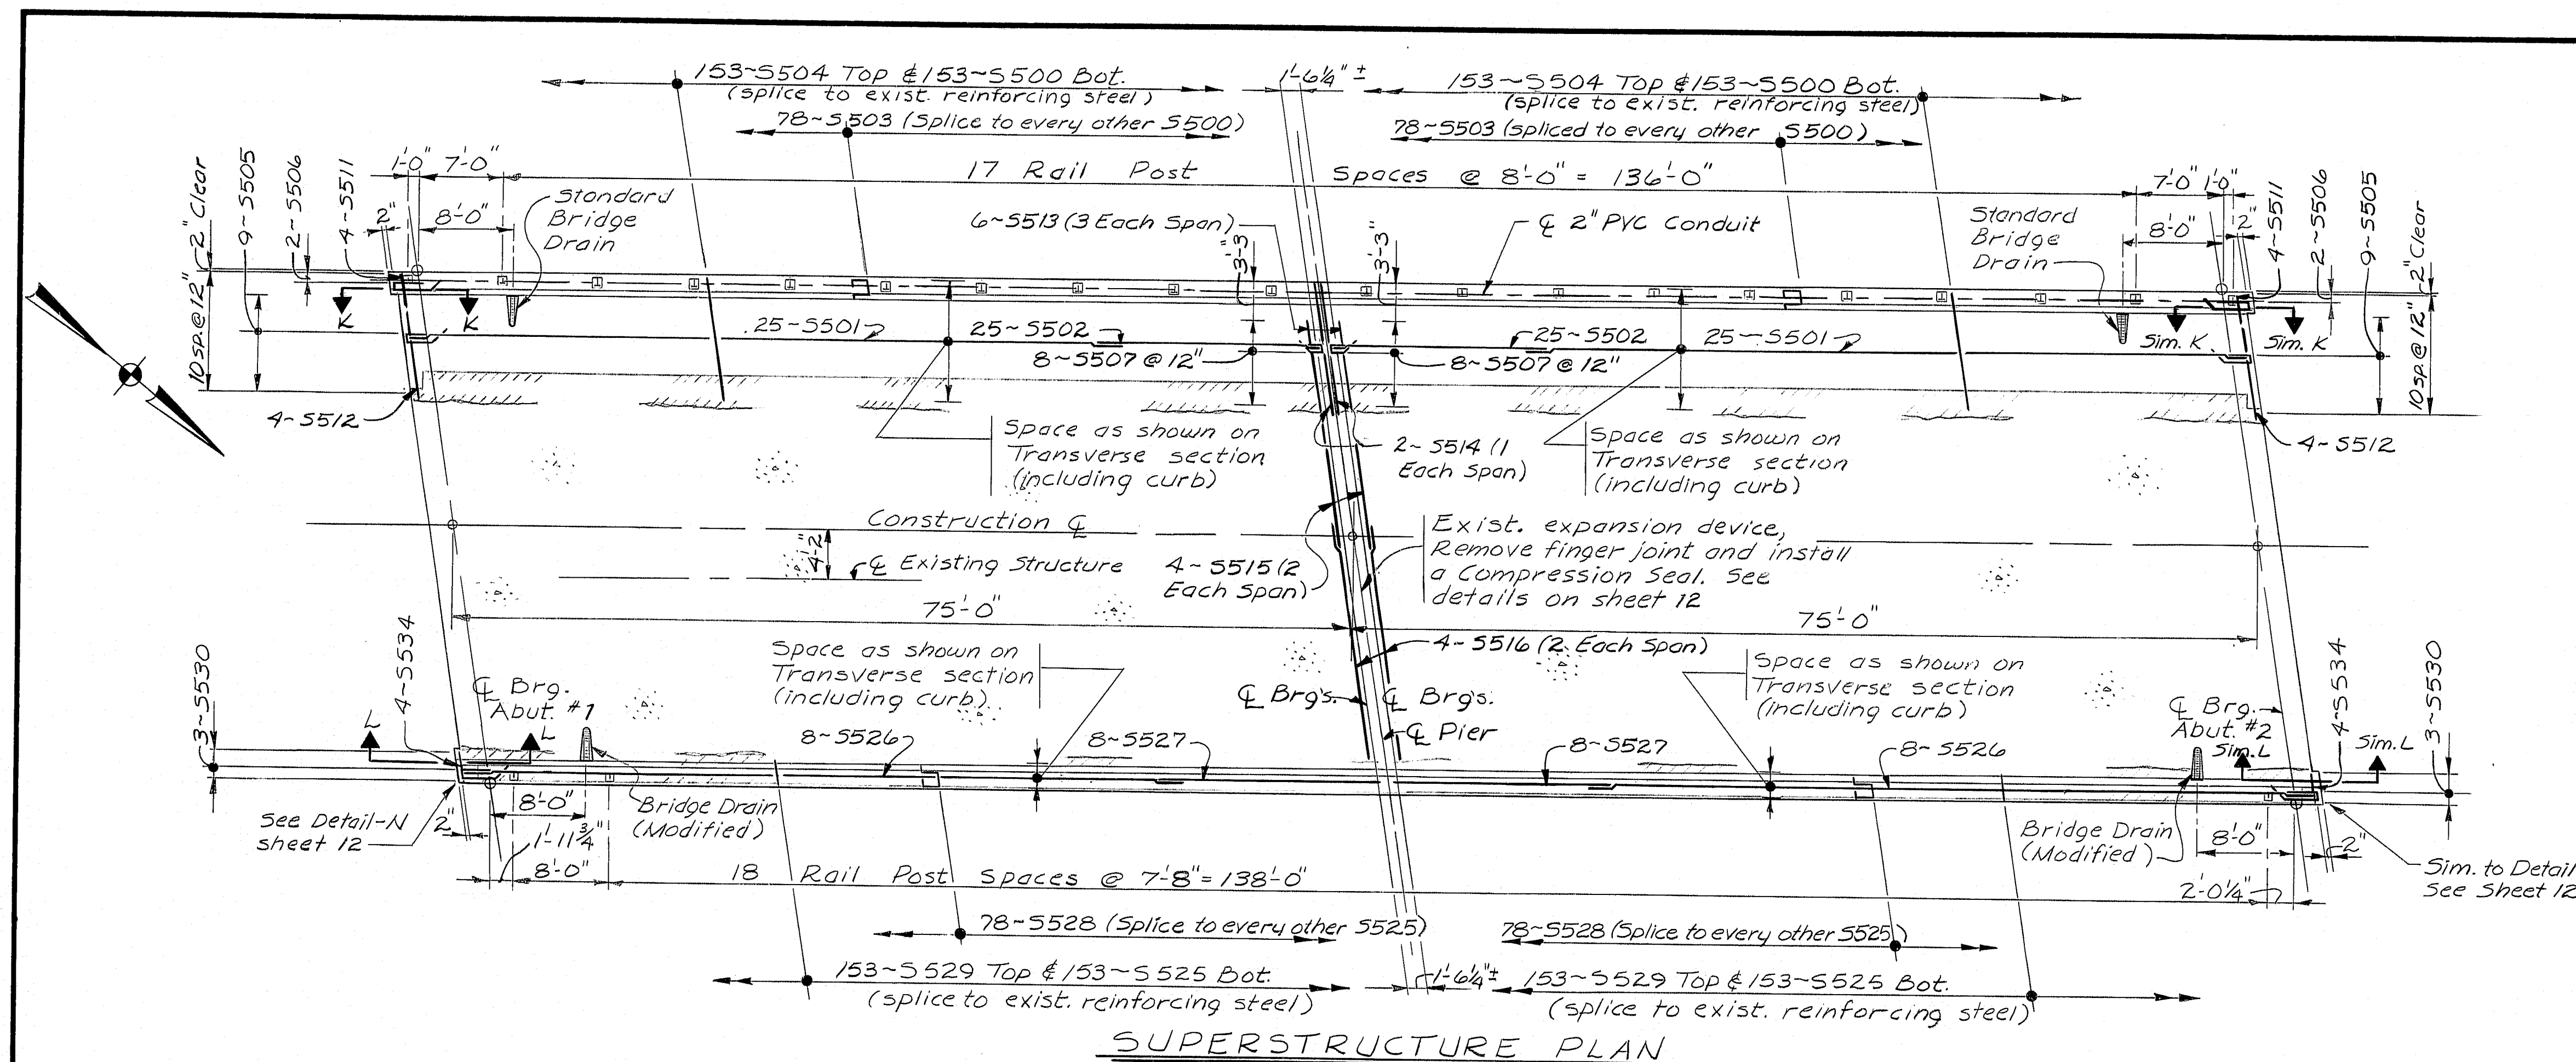 153~S504 Top & 153~S500 Bot.
(splice to exist. reinforcing steel)
78~S503 (Splice to every other S500)
1'-6¼" ±
153~S504 Top & 153~S500 Bot.
(splice to exist. reinforcing steel)
78~S503 (spliced to every other S500)
17 Rail Post Spaces @ 8'-0" = 136'-0"
1'-0" 7'-0"
7'-0" 1'-0"
2" Clear
10 sp. @ 12"
9~S505
2~S506
4~S511
2"
8'-0"
Standard
Bridge
Drain
6~S513 (3 Each Span)
3'-3"
3'-3"
℄ 2" PVC Conduit
Standard
Bridge
Drain
8'-0"
2"
4~S511
2~S506
9~S505
2" Clear
10 sp. @ 12"
K K
Sim. K Sim. K
25~S501
25~S502
8~S507 @ 12"
25~S502
25~S501
8~S507 @ 12"
4~S512
4~S512
Space as shown on
Transverse section
(including curb)
2~S514 (1
Each Span)
Space as shown on
Transverse section
(including curb)
Construction ℄
4'-2"
℄ Existing Structure
4~S515 (2
Each Span)
Exist. expansion device,
Remove finger joint and install
a Compression Seal. See
details on sheet 12
75'-0"
75'-0"
4~S516 (2 Each Span)
Space as shown on
Transverse section
(including curb)
Space as shown on
Transverse section
(including curb)
℄ Brg's.
℄ Brg's.
℄ Pier
3~S530
4~S534
℄ Brg.
Abut. #1
L L
8~S526
8~S527
8~S527
8~S526
℄ Brg.
Abut. #2
Sim. L Sim. L
4~S534
3~S530
See Detail-N
sheet 12
2"
8'-0"
1'-11¾"
8'-0"
Bridge Drain
(Modified)
18 Rail Post Spaces @ 7'-8" = 138'-0"
Bridge Drain
(Modified)
8'-0"
2"
2'-0¼"
Sim. to Detail
See Sheet 12
78~S528 (Splice to every other S525)
78~S528 (Splice to every other S525)
153~S529 Top & 153~S525 Bot.
(splice to exist. reinforcing steel)
1'-6¼" ±
153~S529 Top & 153~S525 Bot.
(splice to exist. reinforcing steel)
SUPERSTRUCTURE PLAN